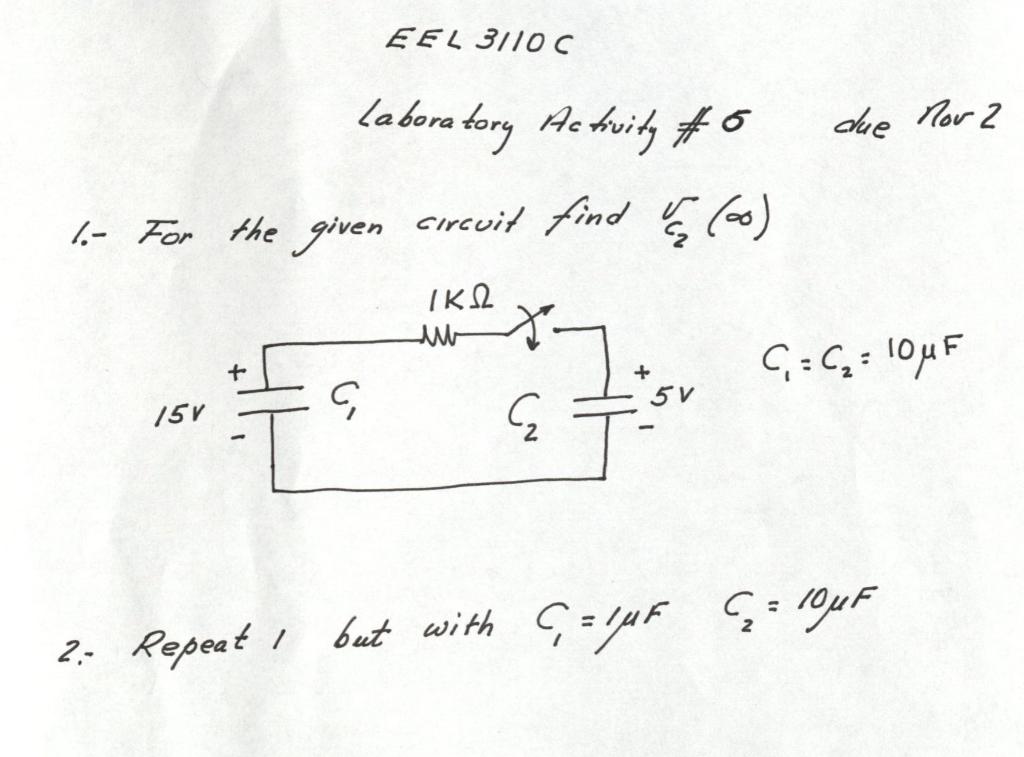 EEL 3110C
Laboratory Activity # 5 due Nov 2
1.- For the given circuit find v_C2 (∞)
1KΩ
C1 = C2 = 10μF
+ +
15V C1 C2 5V
- -
2.- Repeat 1 but with C1 = 1μF C2 = 10μF